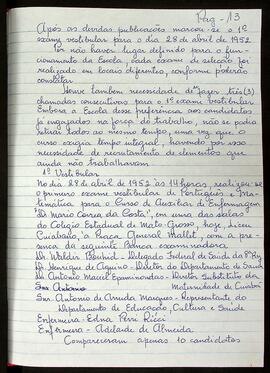 Pag - 13
Após as devidas publicações marcou-se o 1º
exame vestibular para o dia 28 de abril de 1952.
Por não haver lugar definido para o fun-
cionamento da Escola, cada exame de seleção foi
realizado em locais diferentes, conforme poderão
constatar.
Houve também necessidade de fazer três (3)
chamadas consecutivas para o 1º exame vestibular
Embora a Escola desse preferência aos candidatos
já engajados na força do trabalho, não se podia
retirar todos ao mesmo tempo, uma vez que o
curso exigia tempo integral, havendo por isso
necessidade de recrutamento de elementos que
ainda não trabalhavam.
1º Vestibular
No dia 28 de abril de 1952 às 14 horas, realizou-se
o primeiro exame vestibular de Português e Ma-
temática para o Curso de Auxiliar de Enfermagem
"Dr Mário Corrêa da Costa", em uma das salas
do Colégio Estadual de Mato Grosso, hoje, Liceu
Cuiabano, à Praça General Mallet, com a pre-
sença da seguinte banca examinadora
Dr Waldir - Delegado Federal de Saúde da 8ª
Dr Henrique de Aquino - Diretor do Departamento de Saúde
Dr Antonio Maciel Epaminondas - Diretor Substituto da
Maternidade de Cuiabá
Snr. Antonio de Arruda Marques - Representante do
Departamento de Educação, Cultura e Saúde
Enfermeira - Edna Perri Ricci
Enfermeira - Adelaide de Almeida
Compareceram apenas 10 candidatos